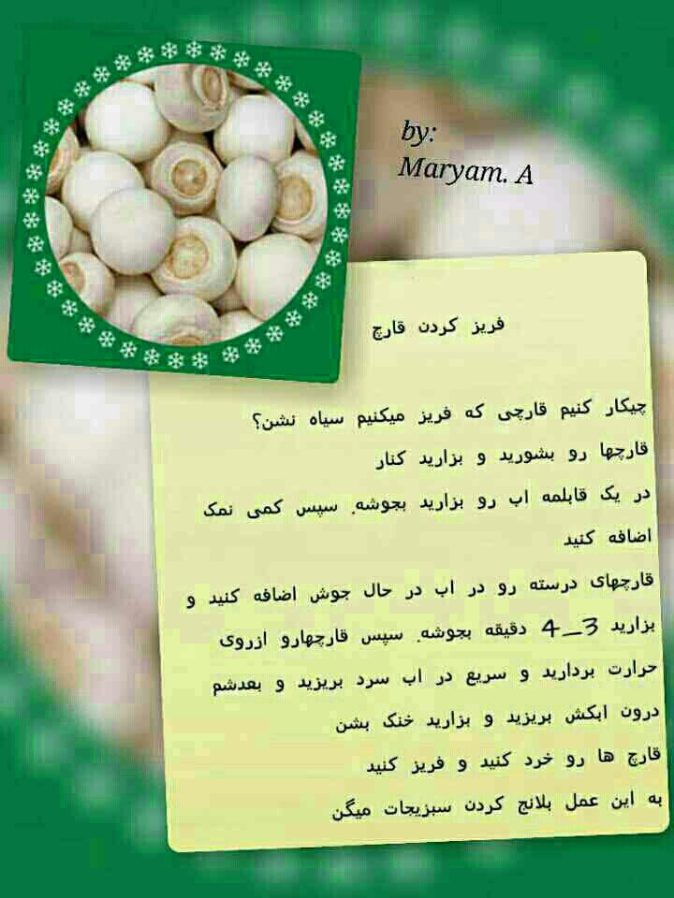 by:
Maryam. A
فریز کردن قارچ
چیکار کنیم قارچی که فریز میکنیم سیاه نشن؟
قارچها رو بشورید و بزارید کنار
در یک قابلمه اب رو بزارید بجوشه. سپس کمی نمک
اضافه کنید
قارچهای درسته رو در اب در حال جوش اضافه کنید و
بزارید 3_4 دقیقه بجوشه. سپس قارچهارو ازروی
حرارت بردارید و سریع در اب سرد بریزید و بعدشم
درون ابکش بریزید و بزارید خنک بشن
قارچ ها رو خرد کنید و فریز کنید
به این عمل بلانچ کردن سبزیجات میگن